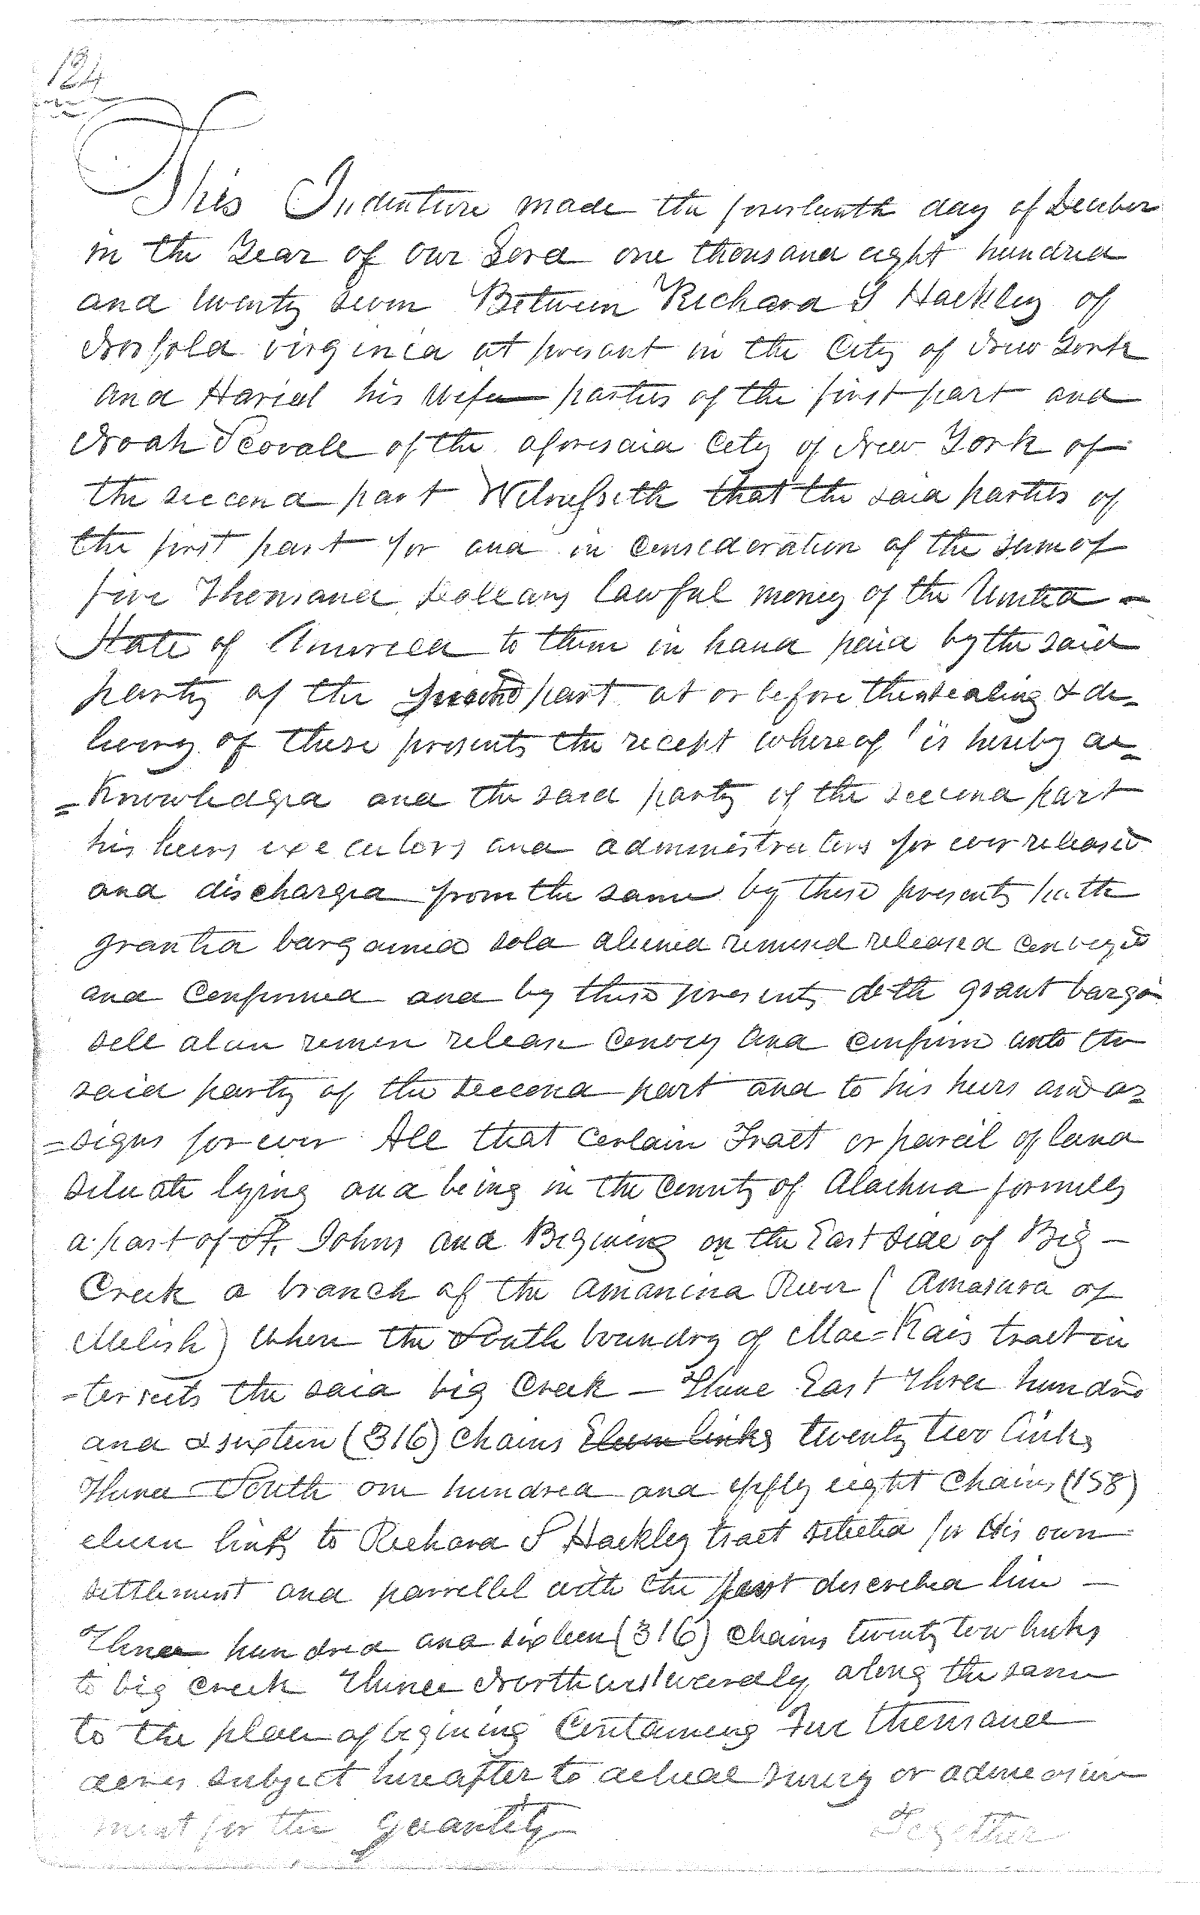 124
This Indenture made the fourteenth day of December
in the Year of our Lord one thousand eight hundred
and twenty seven Between Richard S Hackley of
Norfold virginia at present in the City of New York
and Hariel his Wife parties of the first part and
Noah Scovale of the aforesaid City of New York of
the seccend part Witnesseth that the said parties of
the first part for and in consederation of the sum of
five Thousand Dollars lawful money of the United -
State of America to them in hand paid by the said
party of the second part at or before the ensealing & de-
livery of these presents the recept whereof is hereby ac=
=knowledged and the said party of the seccend part
his heirs executors and administrators for ever released
and discharged from the same by these presents hath
granted bargained sold aliened remised released conveyed
and Confirmed and by these presents doth grant bargain
sell alien remise release convey and confirm unto the
said party of the seccend part and to his heirs and as=
=signs for ever All that certain Tract or parcil of land
situate lying and being in the county of Alachua formerly
a part of St. Johns and Begining on the East side of Big -
Creek a branch of the Amanina River ( Amasura of
Melish) Where the South boundry of Mac=Kais tract in
=tersects the said big Creek - Thence East Three hundred
and & sixteen (316) chains Eleven links twenty two links
Thence South one hundred and fifty eight Chains (158)
eleven links to Richard S Hackley tract selected for his own
settlement and parrellel with the first descrebed line -
Three hundred and sixteen (316) chains twenty tow links
to big creek Thence Northwestwardly along the same
to the place of begining Containing Five thousand
acres subject hereafter to actual survey or admeasure
ment for the quantity Together